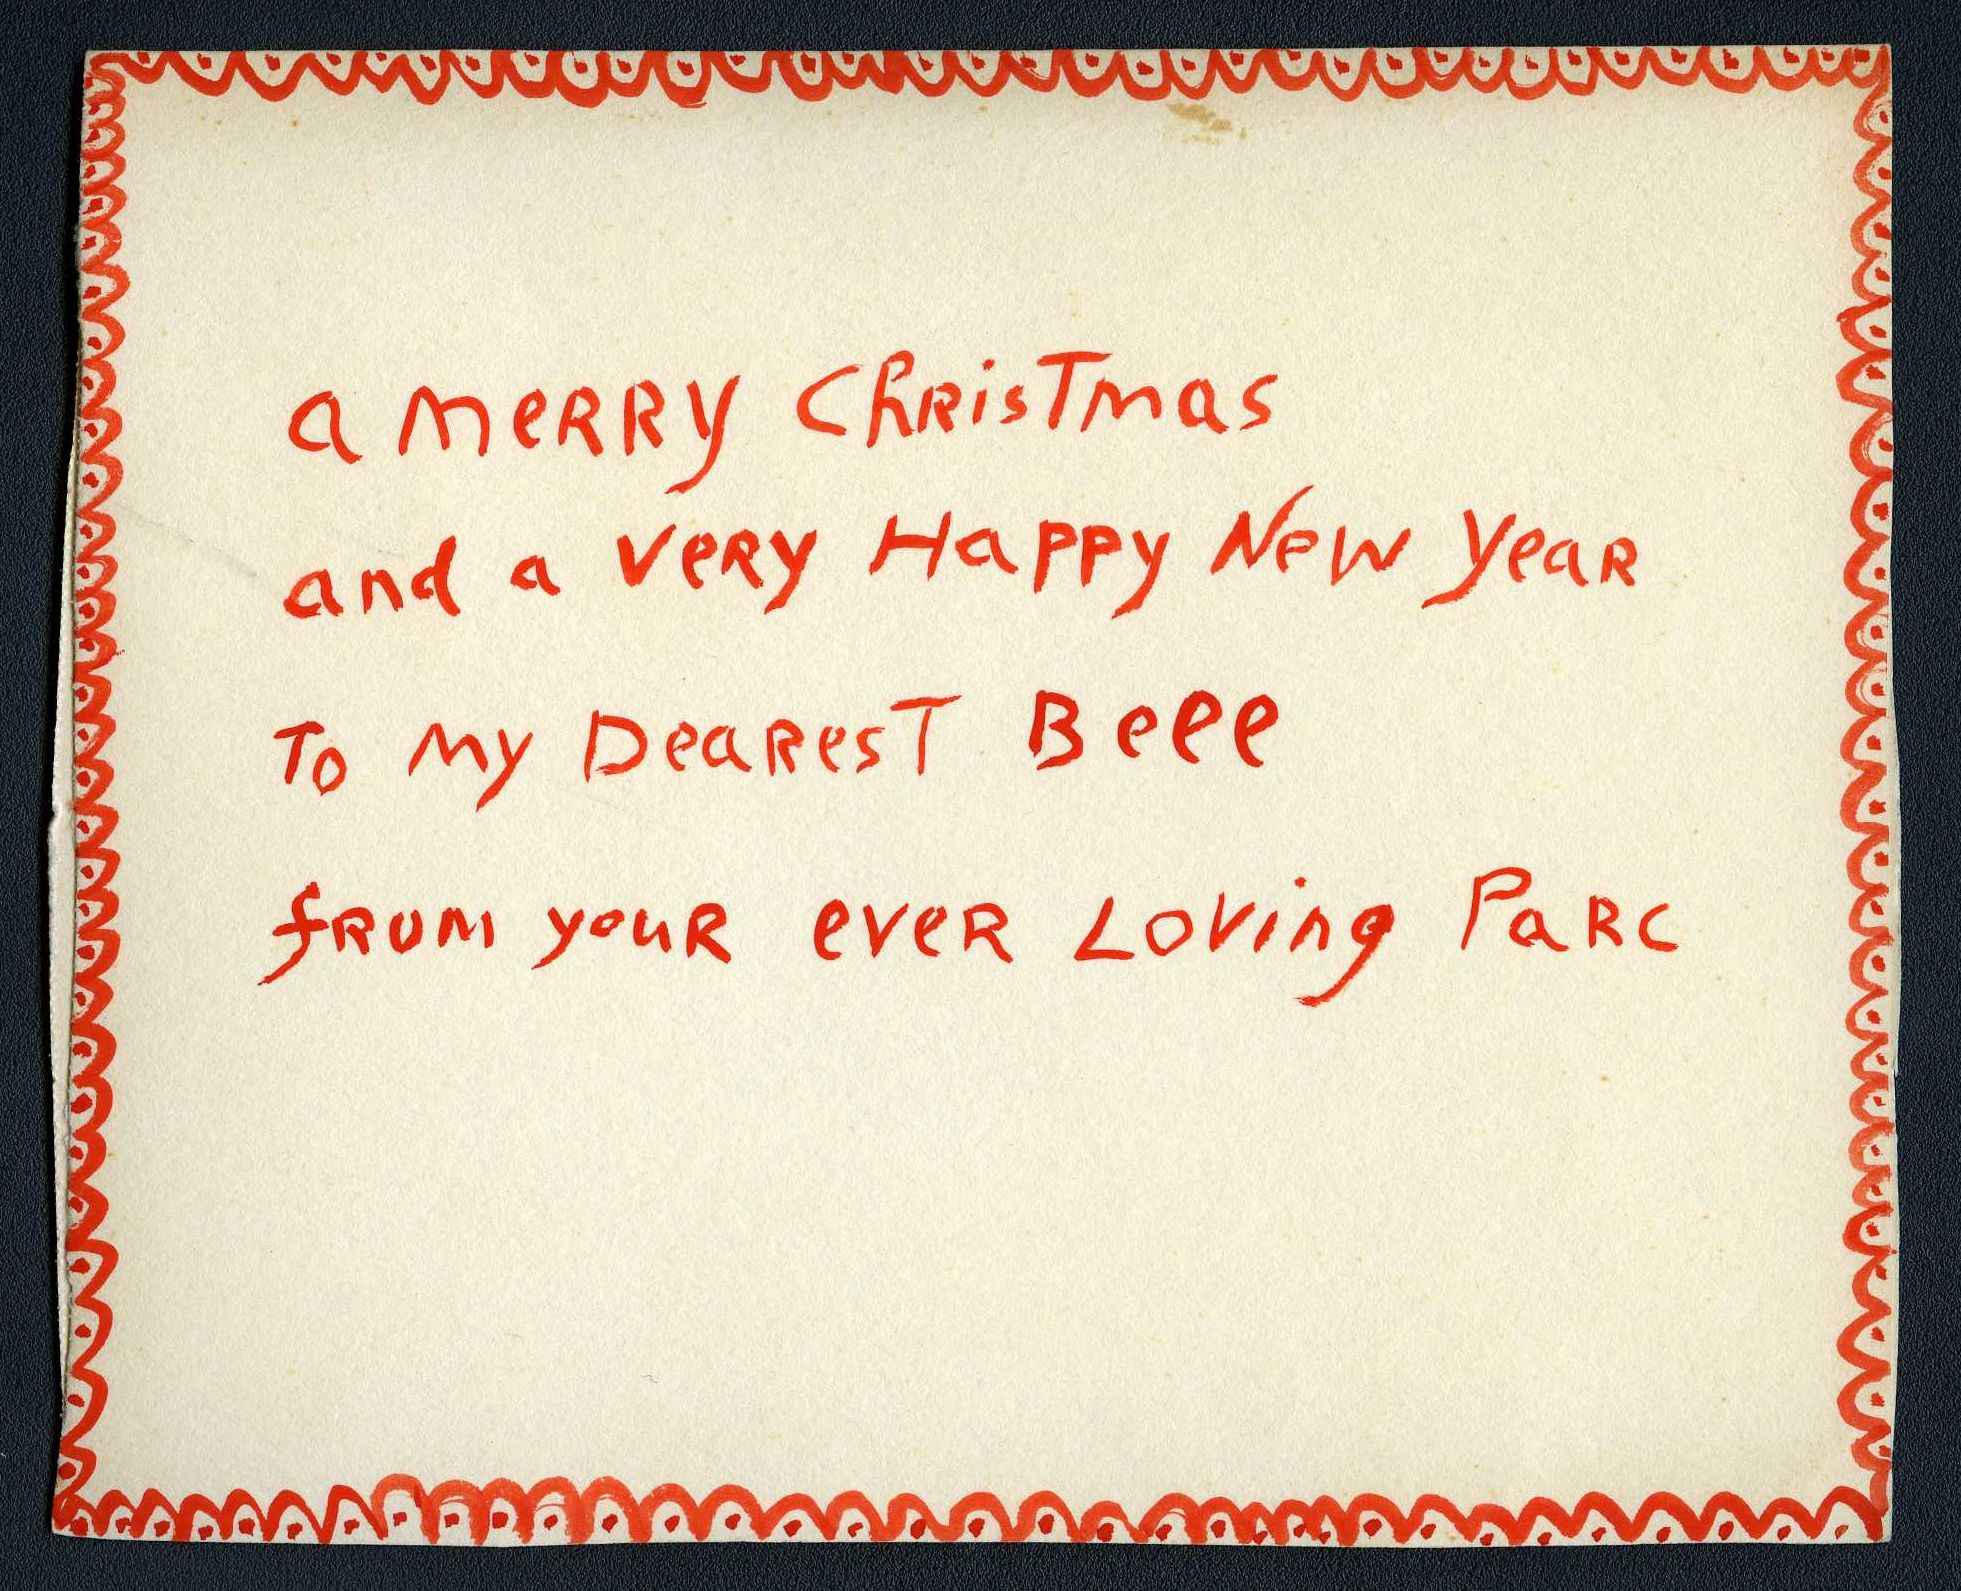 a merry Christmas
and a very Happy New Year
To my Dearest Beee
from your ever Loving Parc